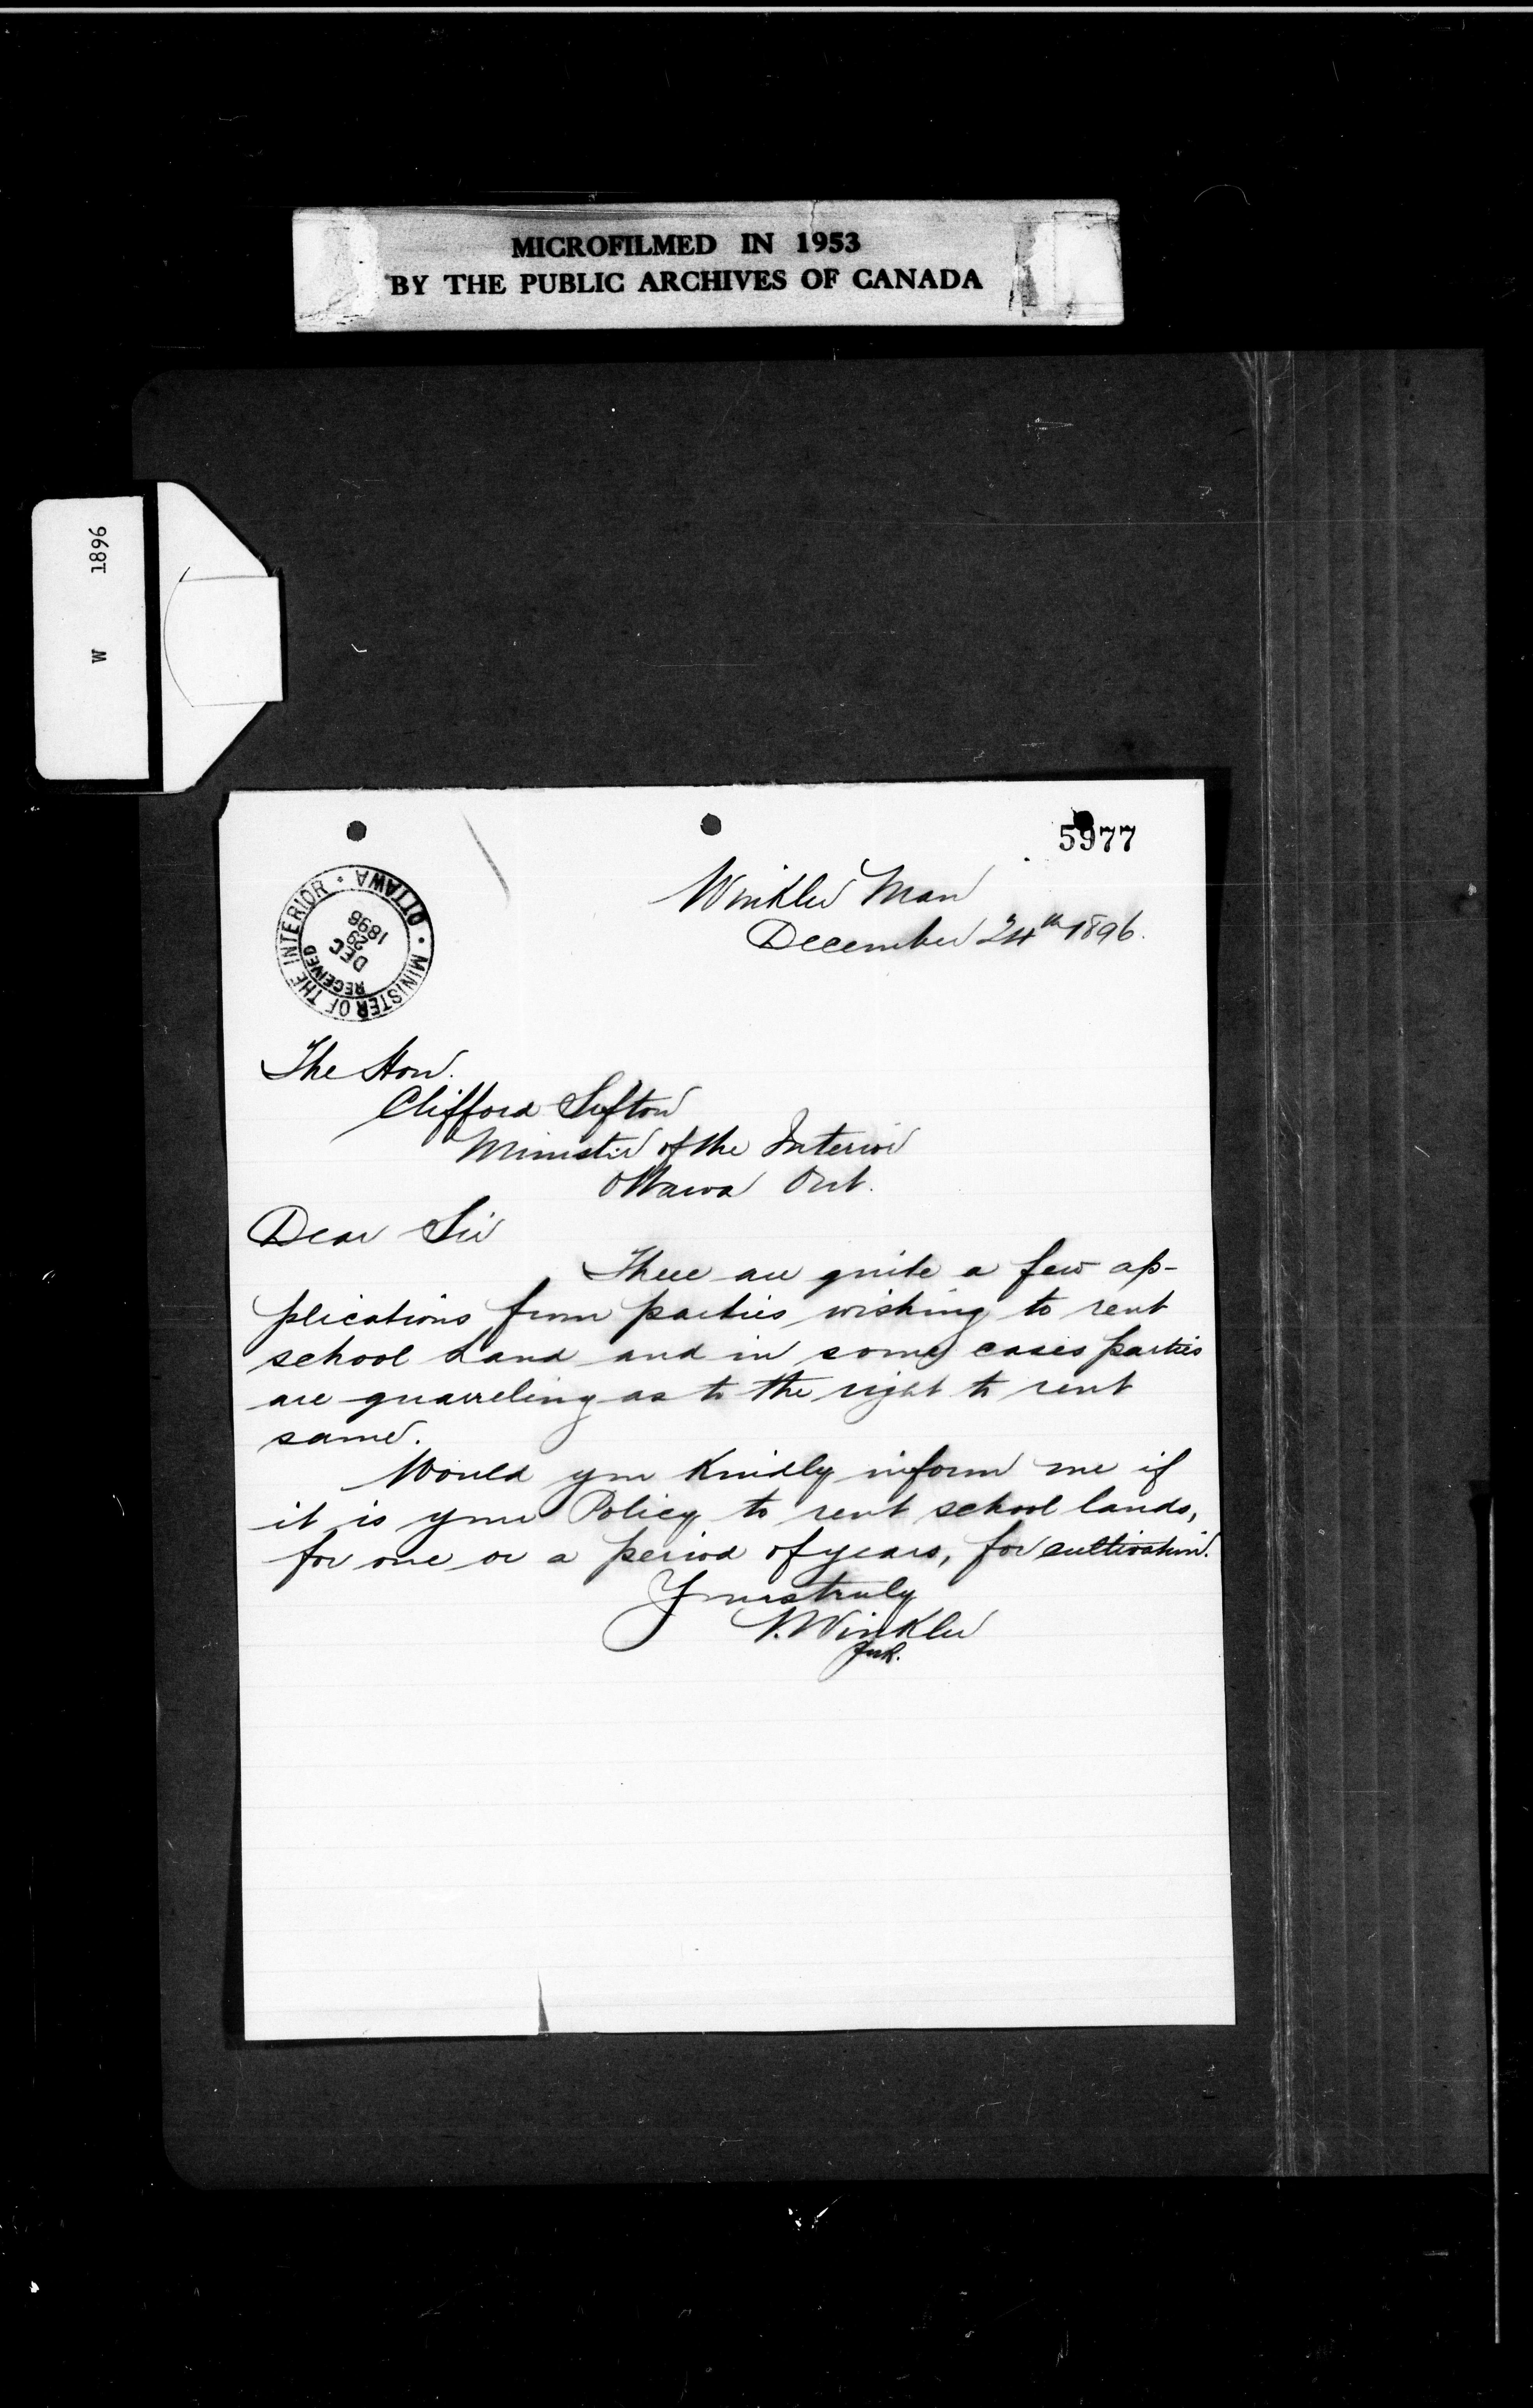 MICROFILMED IN 1953
BY THE PUBLIC ARCHIVES OF CANADA
W 1896
5977
MINISTER OF THE INTERIOR • OTTAWA •
RECEIVED
DEC
29
1896
Winkler Man
December 24th 1896.
The Hon.
Clifford Sifton
Minister of the Interior
Ottawa Ont.
Dear Sir
There are quite a few ap-
plications from parties wishing to rent
school Land and in some cases parties
are quarreling as to the right to rent
same.
Would you Kindly inform me if
it is your Policy to rent school lands,
for one or a period of years, for cultivation.
Yours truly
V. Winkler